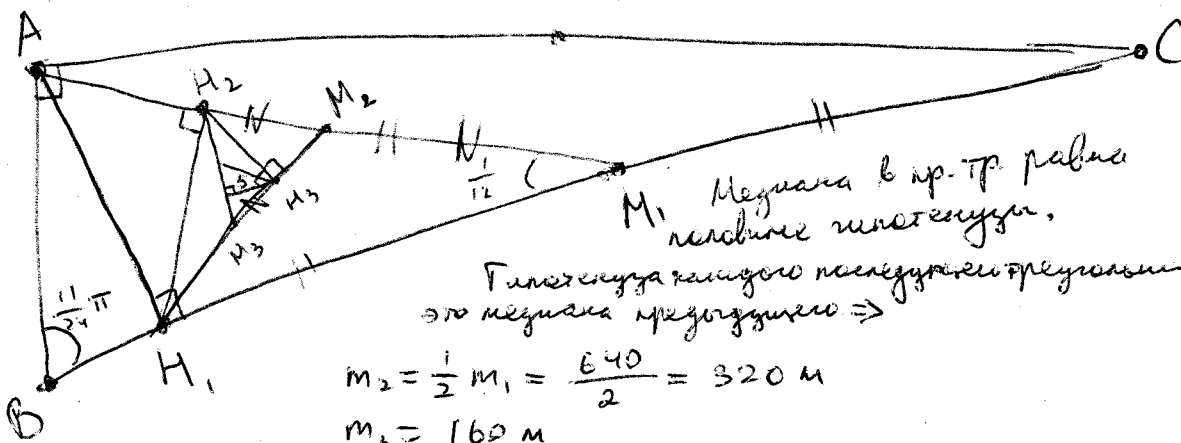 A
C
H₂
M₂
N
N
1/12
M₁
Медиана в пр. тр. равна
половине гипотенузы.
5
H₃
M₃
Гипотенуза каждого последующего треугольни
это медиана предыдущего ⇒
11/24 π
H₁
B
m₂ = 1/2 m₁ = 640/2 = 320 м
m₃ = 160 м